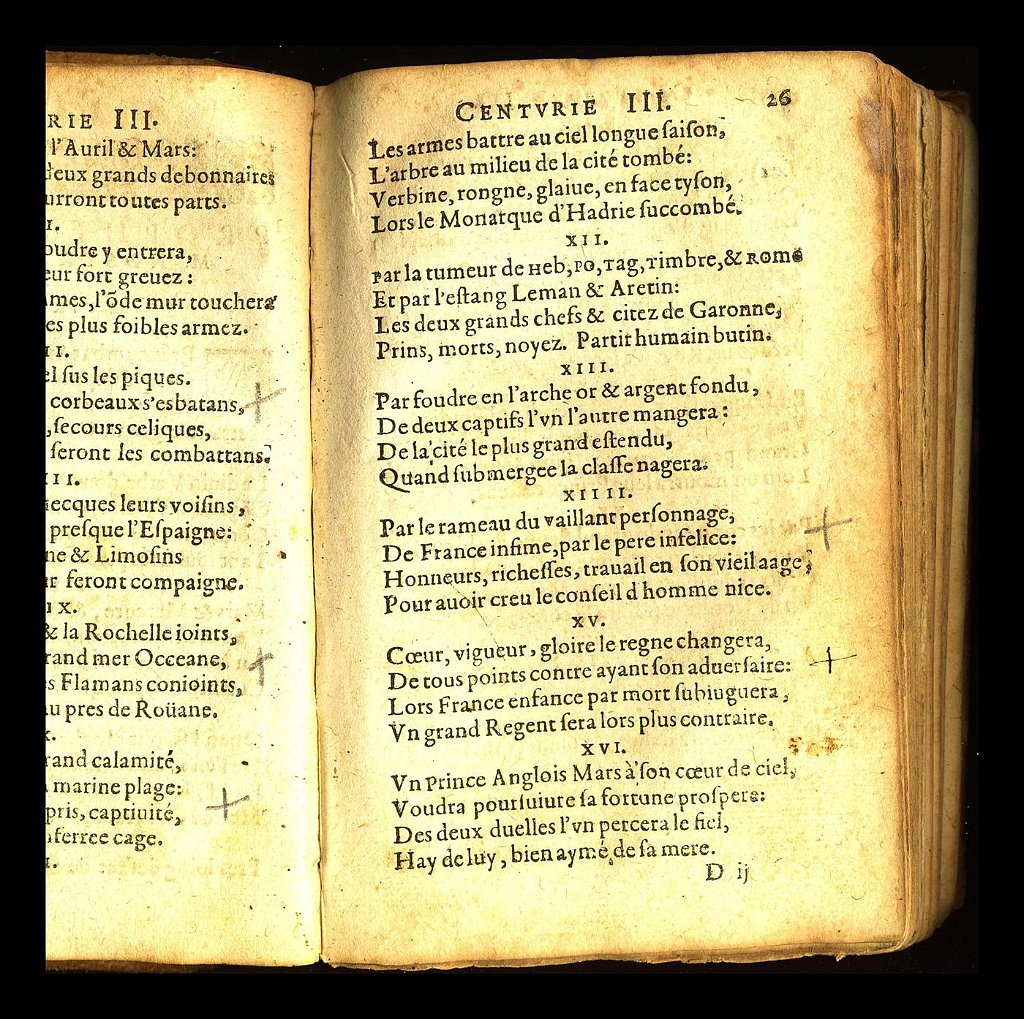 RIE III.
l'Auril & Mars:
deux grands debonnaires
urront toutes parts.
I.
oudre y entrera,
eur fort greuez :
mes, l'õde mur touchera
es plus foibles armez.
II.
el ſus les piques.
corbeaux s'esbatans,
, ſecours celiques,
ſeront les combattans.
III.
ecques leurs voiſins,
preſque l'Eſpaigne:
ne & Limoſins
ur feront compaigne.
IX.
& la Rochelle ioints,
rand mer Occeane,
s Flamans conioints,
u pres de Roüane.
X.
rand calamité,
marine plage:
pris, captiuité,
ferree cage.
I.
CENTVRIE III. 26
Les armes battre au ciel longue ſaiſon,
L'arbre au milieu de la cité tombé:
Verbine, rongne, glaiue, en face tyſon,
Lors le Monarque d'Hadrie ſuccombé.
XII.
Par la tumeur de Heb, PO, Tag, Timbre, & ROME
Et par l'eſtang Leman & Aretin:
Les deux grands chefs & citez de Garonne,
Prins, morts, noyez. Partir humain butin.
XIII.
Par foudre en l'arche or & argent fondu,
De deux captifs l'vn l'autre mangera:
De la cité le plus grand eſtendu,
Quand ſubmergee la claſſe nagera.
XIIII.
Par le rameau du vaillant perſonnage,
De France infime, par le pere infelice:
Honneurs, richeſſes, trauail en ſon vieil aage,
Pour auoir creu le conſeil d homme nice.
XV.
Cœur, vigueur, gloire le regne changera,
De tous points contre ayant ſon aduerſaire:
Lors France enfance par mort ſubiuguera,
Vn grand Regent ſera lors plus contraire.
XVI.
Vn Prince Anglois Mars à ſon cœur de ciel,
Voudra pourſuiure ſa fortune proſpere:
Des deux duelles l'vn percera le fiel,
Hay de luy, bien aymé de ſa mere.
D ij